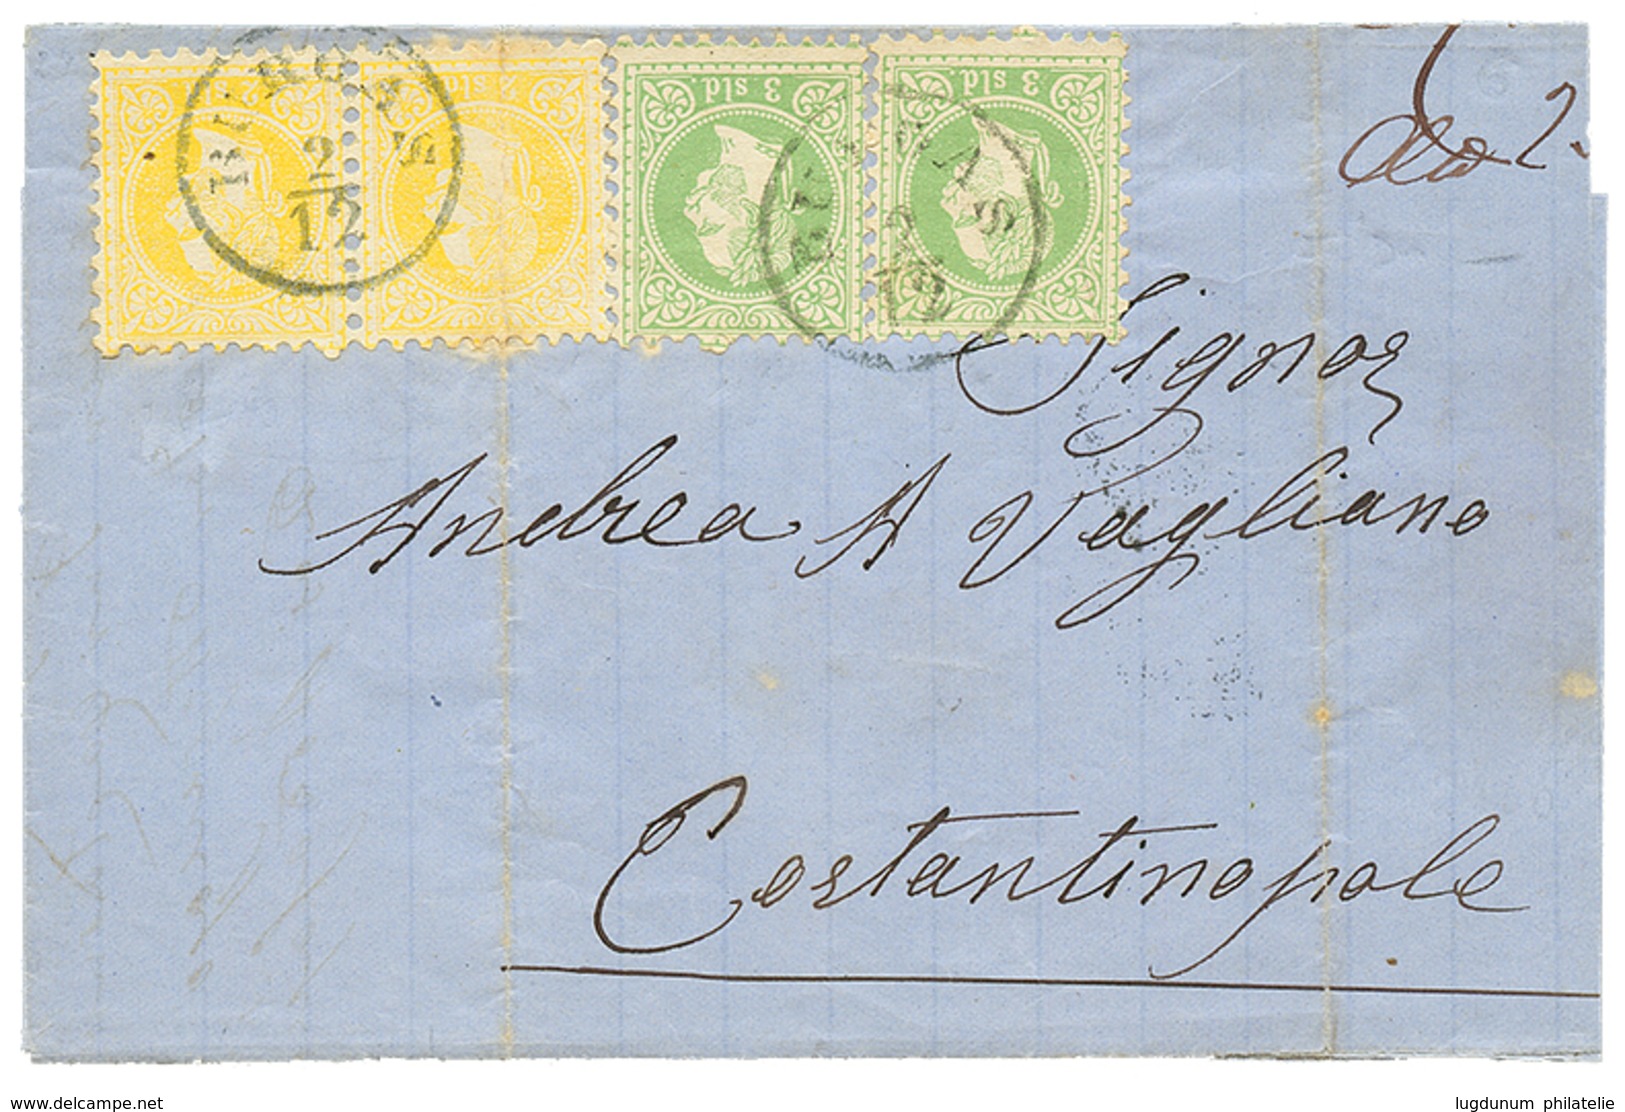 2 sld. 2 sld. 3 sld. 3 sld.
BURGAS
2/12
BURGAS
2/12
Signor
Andrea A Vagliano
Costantinopole
www.delcampe.net
lugdunum philatelie